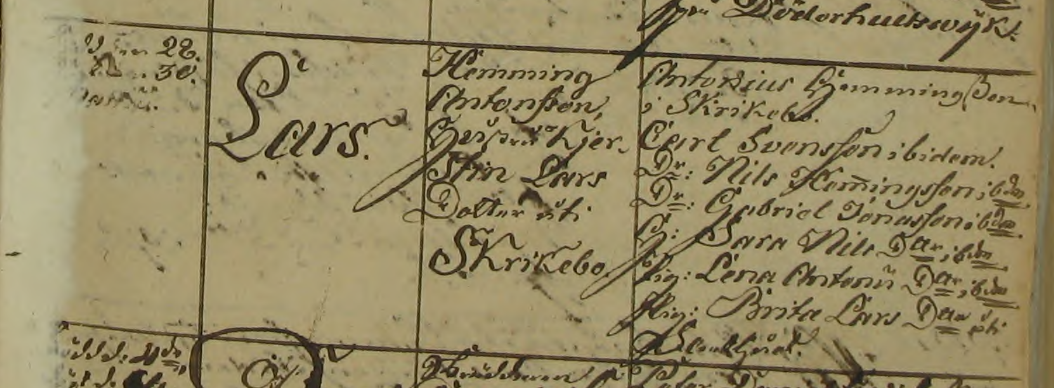 Döderhultswijk.
28.
30.
Lars.
Hemming
Antonsson,
Hustru Kjer-
stin Lars
Dotter uti
Skrikebo.
Antonius Hemmingsson
i Skrikebo.
Carl Svensson ibidem.
Dr: Nils Hem̄ingsson ibdm
Dr: Gabriel Jonasson ibdm
H: Sara Nils Dtr ibdm
Pig: Lena Antoni Dtr ibdm
Pig: Brita Lars Dtr uti